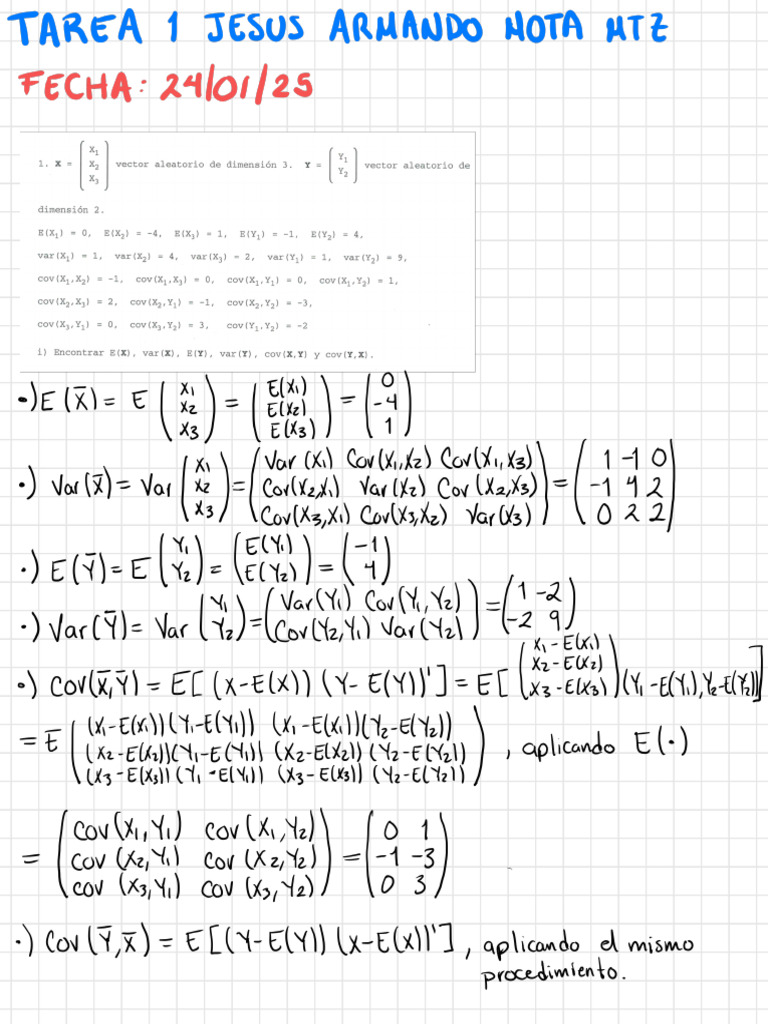 TAREA 1 JESUS ARMANDO MOTA MTZ
FECHA: 24/01/25
1. X = (X₁ X₂ X₃) vector aleatorio de dimensión 3. Y = (Y₁ Y₂) vector aleatorio de
dimensión 2.
E(X₁) = 0, E(X₂) = -4, E(X₃) = 1, E(Y₁) = -1, E(Y₂) = 4,
var(X₁) = 1, var(X₂) = 4, var(X₃) = 2, var(Y₁) = 1, var(Y₂) = 9,
cov(X₁,X₂) = -1, cov(X₁,X₃) = 0, cov(X₁,Y₁) = 0, cov(X₁,Y₂) = 1,
cov(X₂,X₃) = 2, cov(X₂,Y₁) = -1, cov(X₂,Y₂) = -3,
cov(X₃,Y₁) = 0, cov(X₃,Y₂) = 3, cov(Y₁,Y₂) = -2
i) Encontrar E(X), var(X), E(Y), var(Y), cov(X,Y) y cov(Y,X).
•) E(X̄) = E (X₁ X₂ X₃) = (E(X₁) E(X₂) E(X₃)) = (0 -4 1)
•) Var(X̄) = Var (X₁ X₂ X₃) = (Var(X₁) Cov(X₁,X₂) Cov(X₁,X₃)
Cov(X₂,X₁) Var(X₂) Cov(X₂,X₃)
Cov(X₃,X₁) Cov(X₃,X₂) Var(X₃)) = (1 -1 0
-1 4 2
0 2 2)
•) E(Ȳ) = E (Y₁ Y₂) = (E(Y₁) E(Y₂)) = (-1 4)
•) Var(Ȳ) = Var (Y₁ Y₂) = (Var(Y₁) Cov(Y₁,Y₂)
Cov(Y₂,Y₁) Var(Y₂)) = (1 -2
-2 9)
•) Cov(X̄,Ȳ) = E[(X-E(X))(Y-E(Y))'] = E[(X₁-E(X₁)
X₂-E(X₂)
X₃-E(X₃))(Y₁-E(Y₁),Y₂-E(Y₂))]
= E ((X₁-E(X₁))(Y₁-E(Y₁)) (X₁-E(X₁))(Y₂-E(Y₂))
(X₂-E(X₂))(Y₁-E(Y₁)) (X₂-E(X₂))(Y₂-E(Y₂))
(X₃-E(X₃))(Y₁-E(Y₁)) (X₃-E(X₃))(Y₂-E(Y₂))), aplicando E(·)
= (Cov(X₁,Y₁) cov(X₁,Y₂)
cov(X₂,Y₁) cov(X₂,Y₂)
cov(X₃,Y₁) cov(X₃,Y₂)) = (0 1
-1 -3
0 3)
•) Cov(Ȳ,X̄) = E[(Y-E(Y))(X-E(X))'], aplicando el mismo
procedimiento.